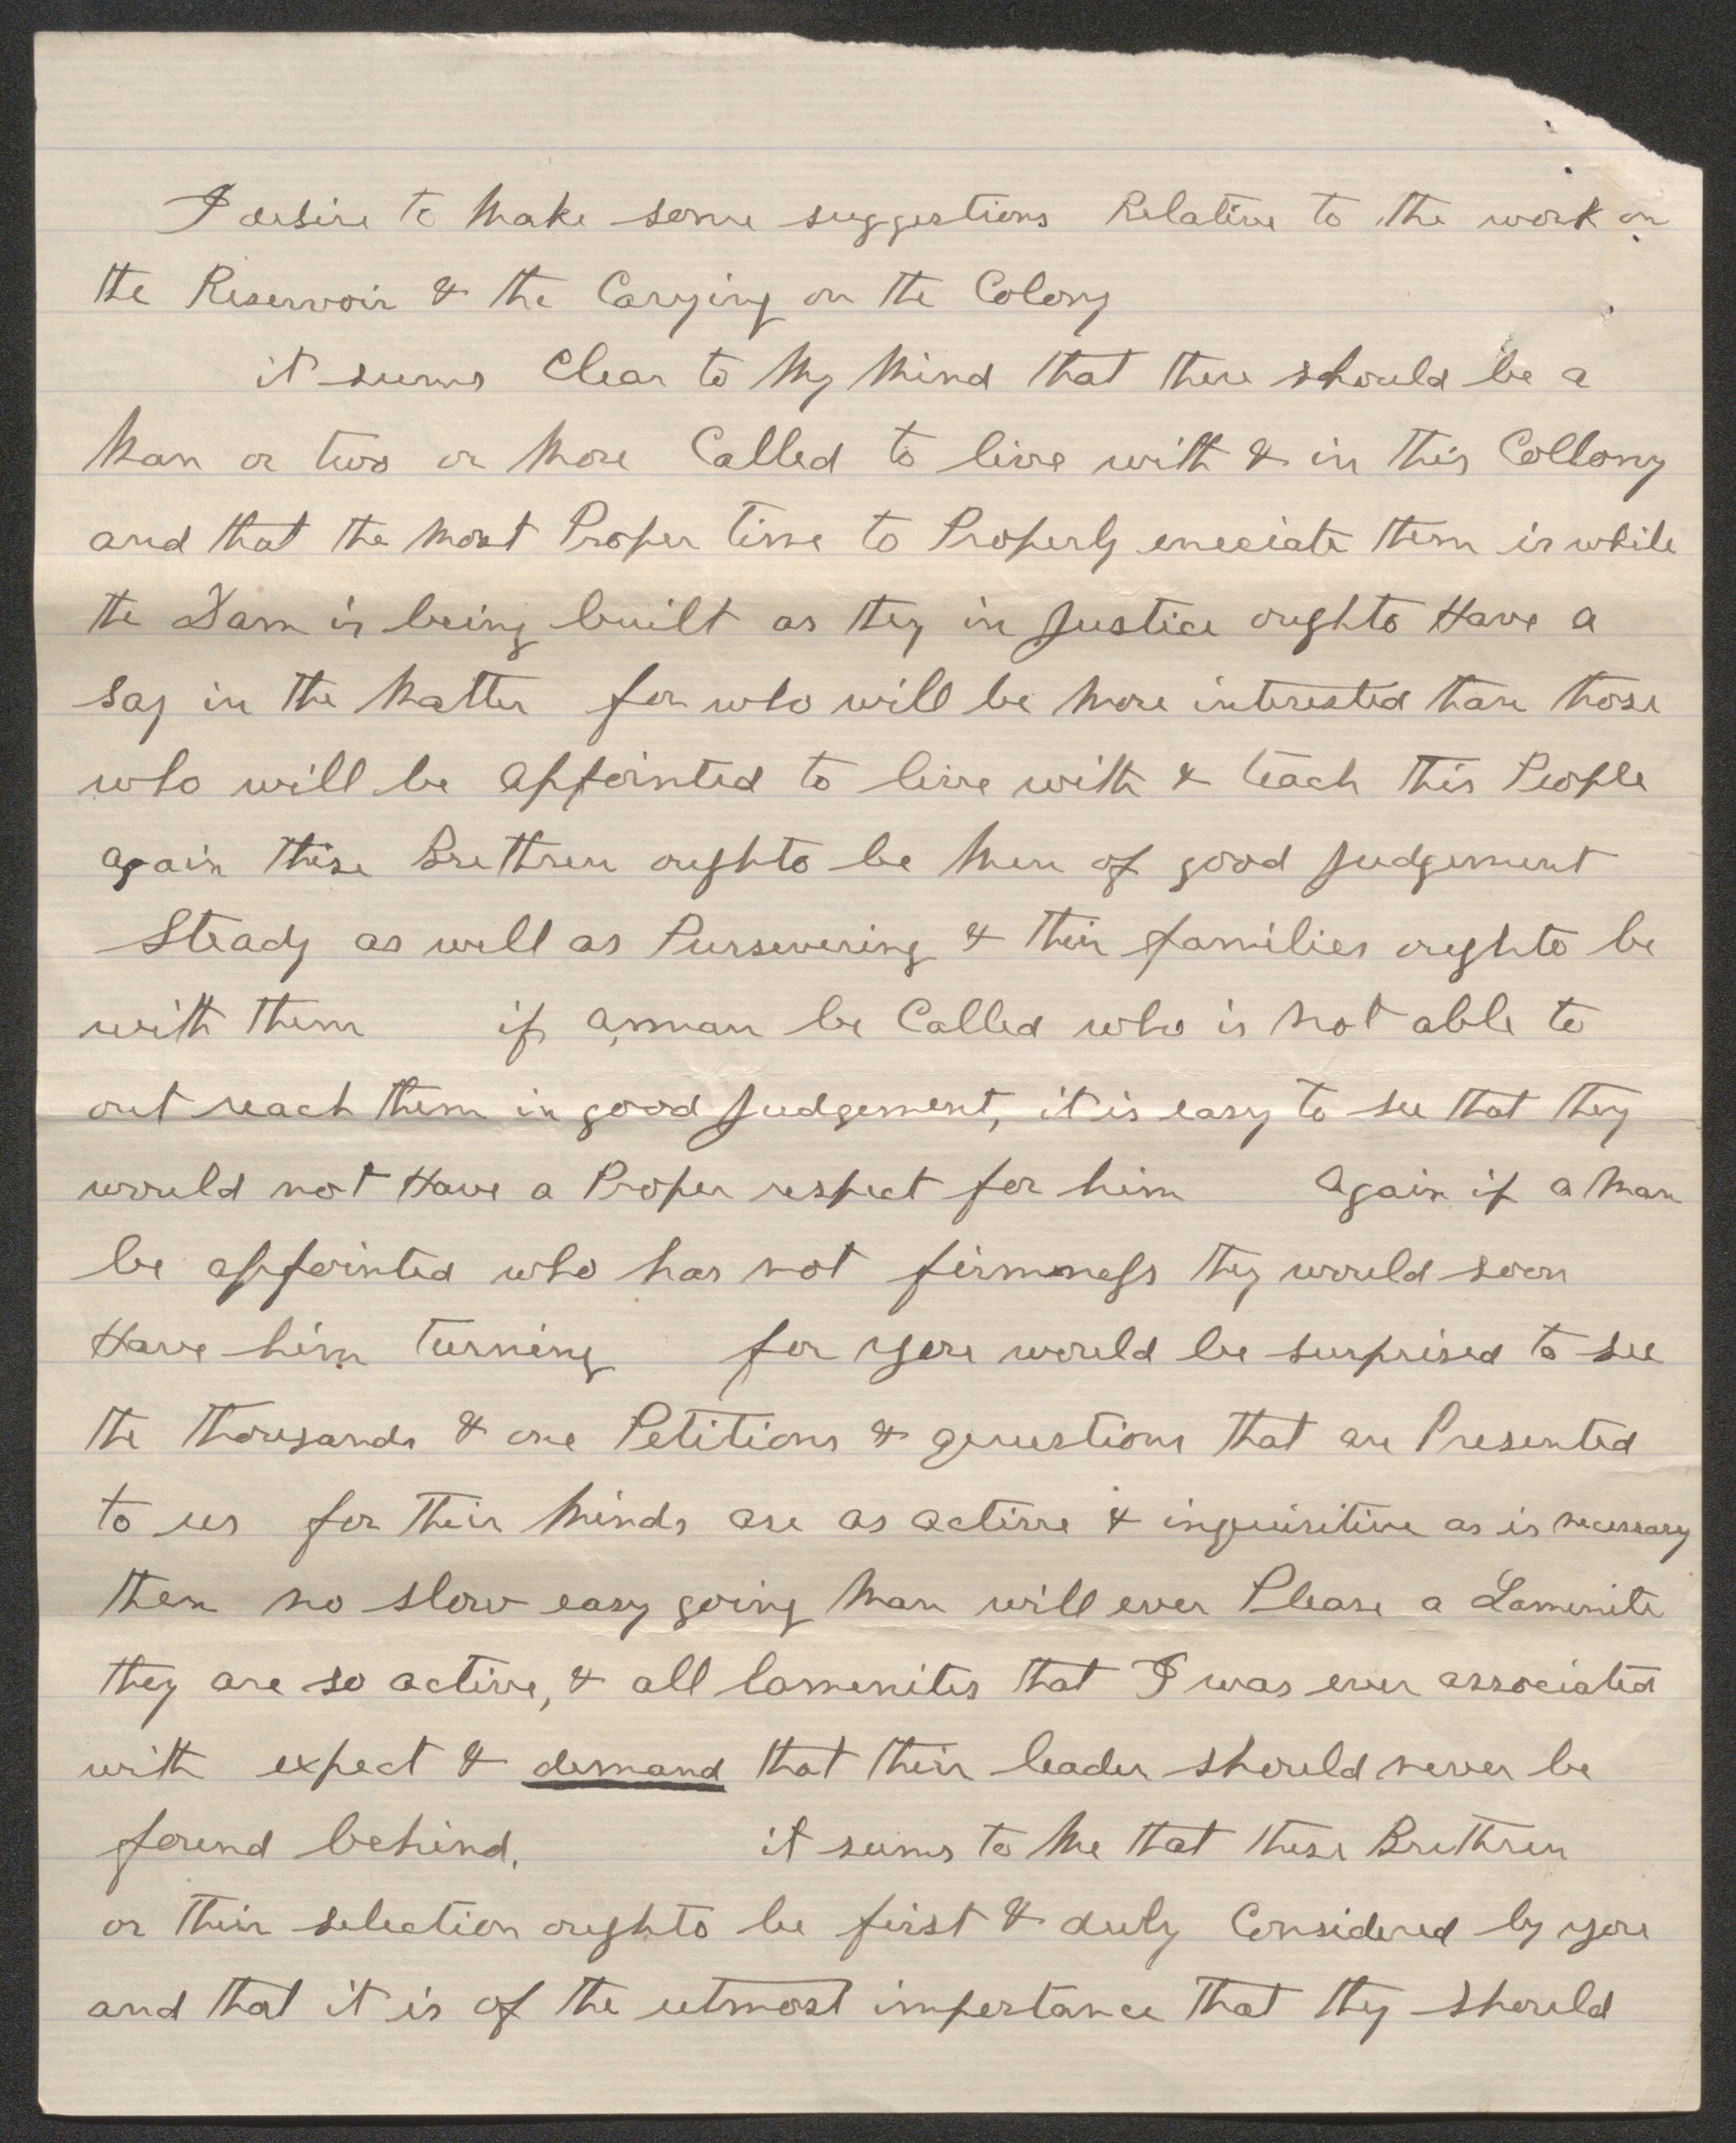 I desire to Make some suggestions Relative to the work on
the Reservoir & the Carrying on the Colony
it seems Clear to My Mind that there should be a
Man or two or More Called to live with & in this Collony
and that the Most Proper time to Properly eneciate them is while
the Dam is being built as they in Justice oughto Have a
say in the Matter for who will be More interested than those
who will be appointed to live with & teach this People
again these Brethren oughto be Men of good Judgement
Steady as well as Pursevering & their families oughto be
with them if a man be Called who is Not able to
out reach them in good Judgement, it is easy to see that they
would not Have a Proper respect for him Again if a Man
be appointed who has not firmness they would soon
Have him turning for you would be surprised to see
the thousands & one Petitions & questions that are Presented
to us for their Minds are as active & inquisitive as is necessary
then no slow easy going Man will ever Please a Lamenite
they are so active, & all lamenites that I was ever associated
with expect & demand that their leader should never be
found behind. it seems to Me that these Brethren
or their selection oughto be first & duly Considered by you
and that it is of the utmost importance that they should